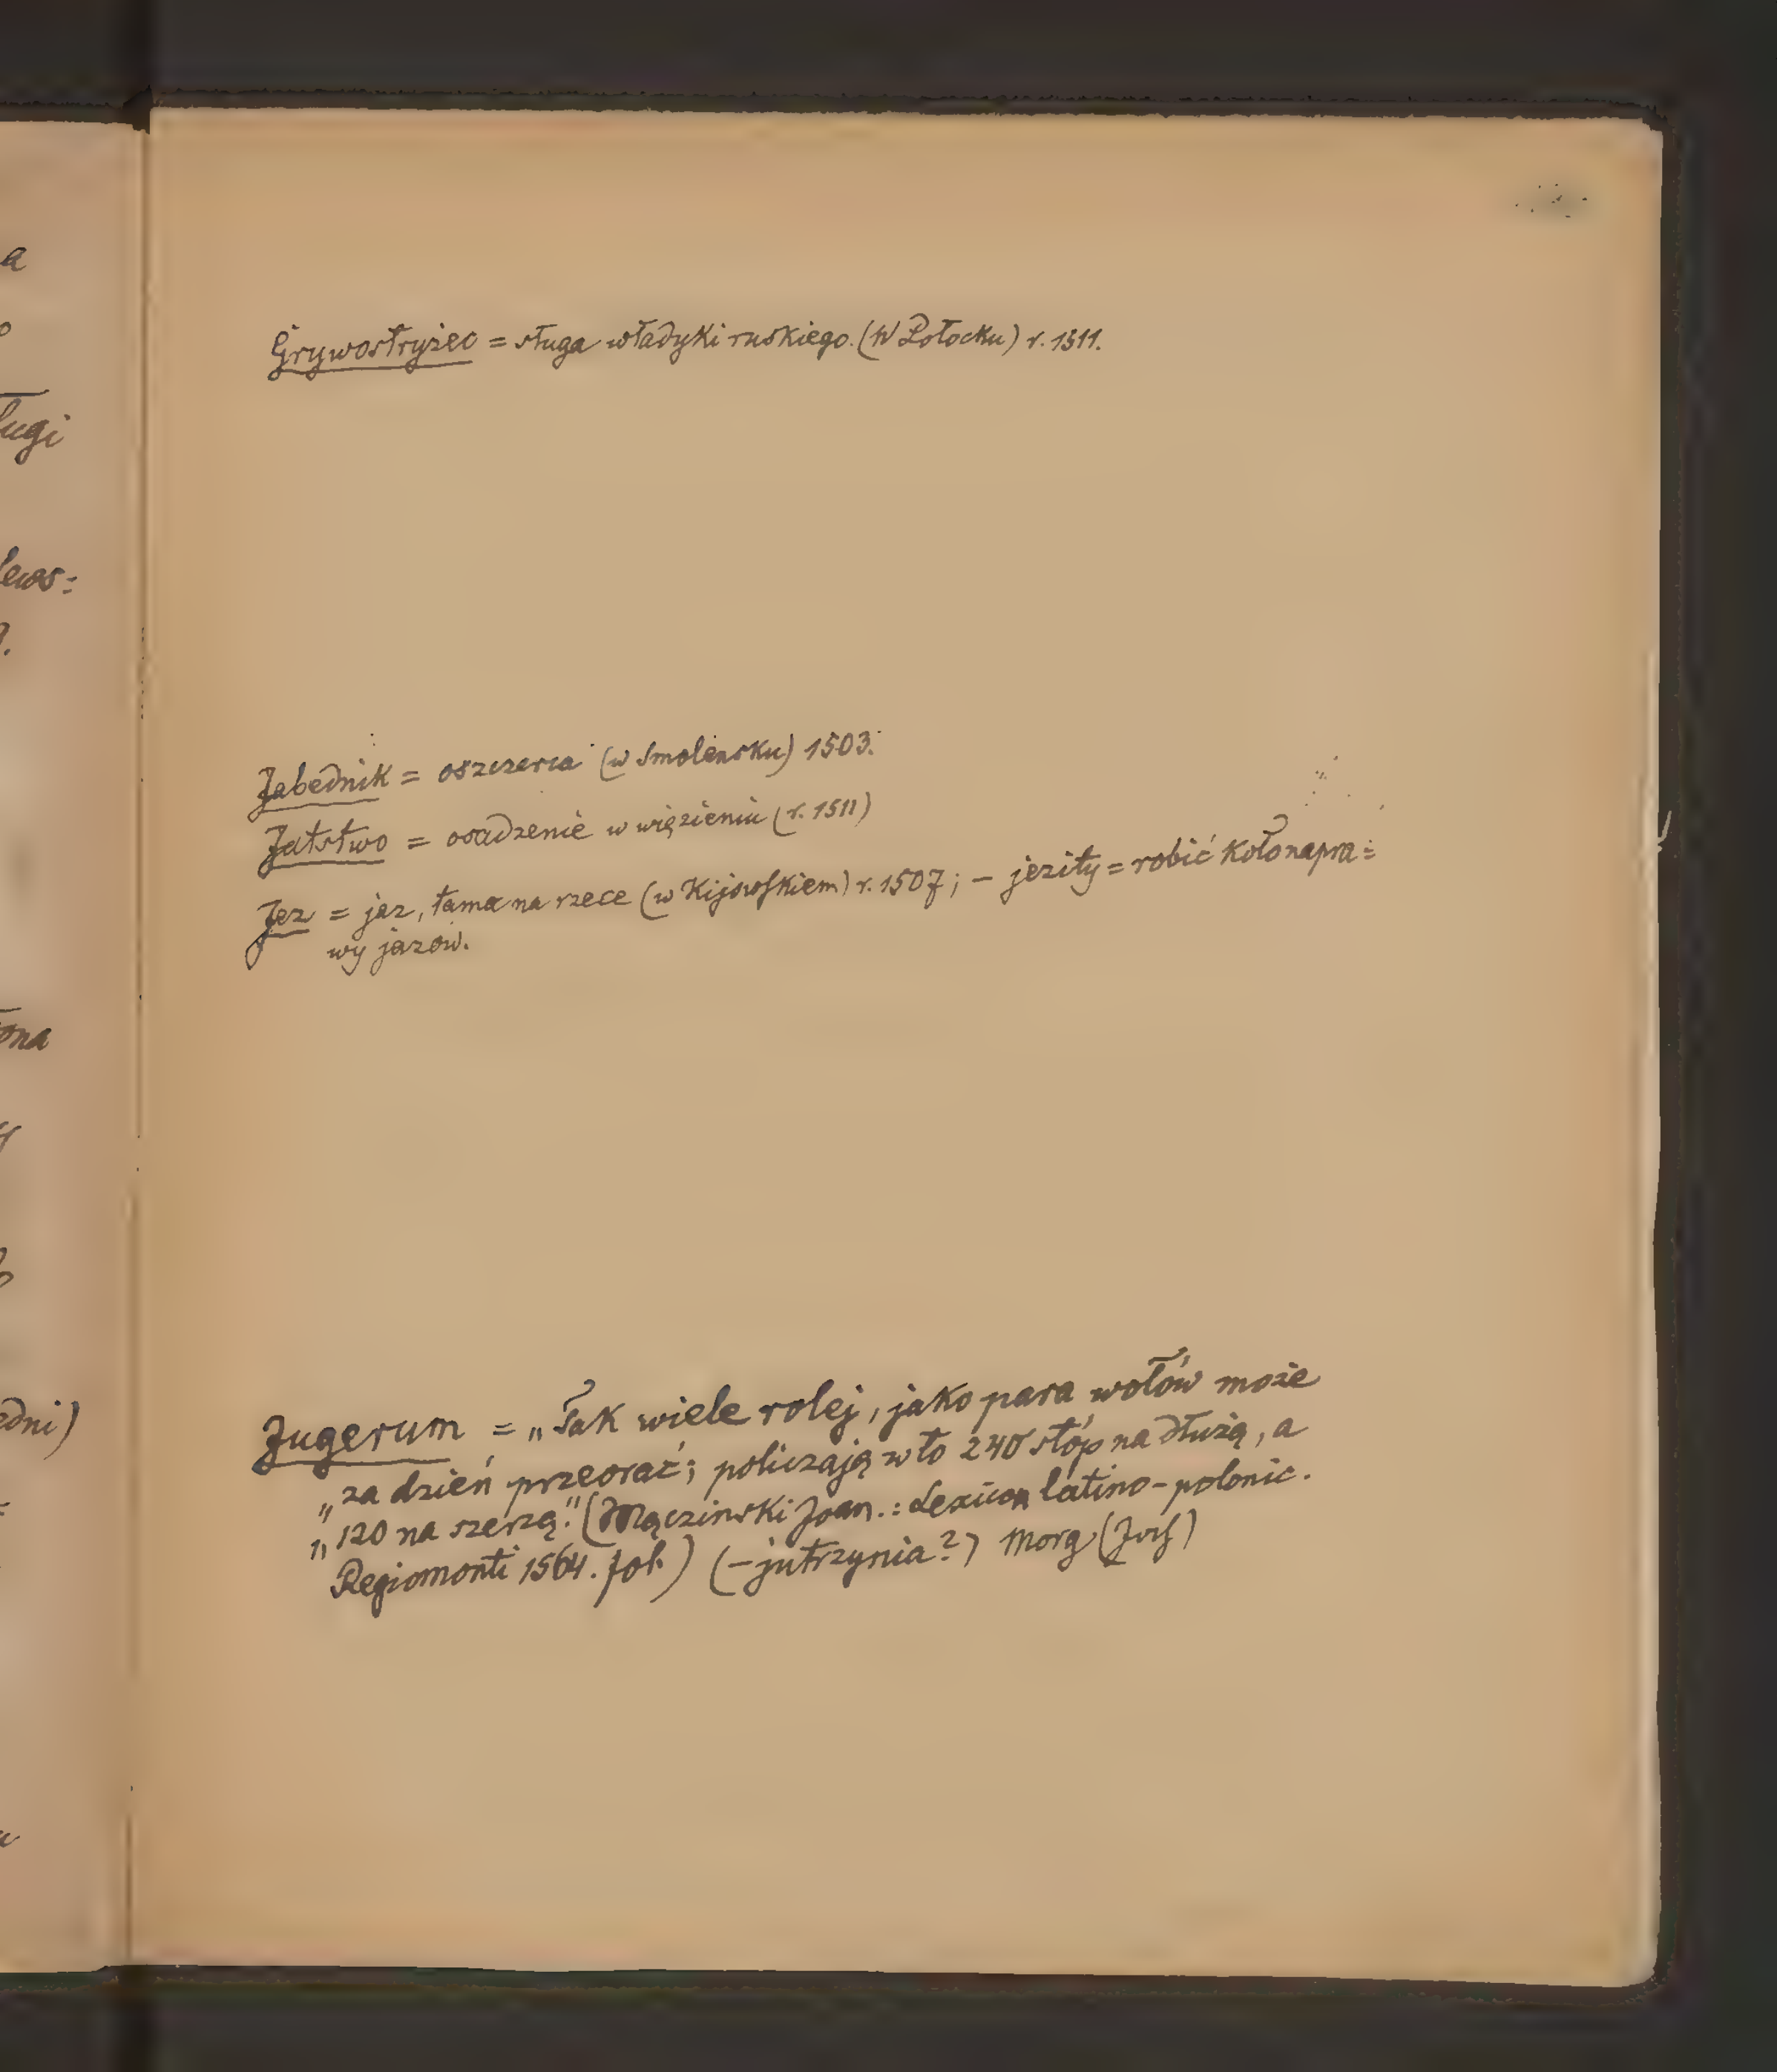 Grywostryżec = sługa władyki ruskiego. (W Połocku) r. 1511.
Jabednik = oszczerca (w Smoleńsku) 1503.
Jatstwo = osadzenie w więzieniu (r. 1511)
Jez = jaz, tama na rzece (w Kijowskiem) r. 1507; – jezity = robić koło napra=
wy jazów.
Jugerum = „Tak wiele rolej, jako para wołów może
„za dzień przeorać; policzają w to 240 stóp na dłużą, a
„120 na szerzą." (Mączinski Joan.: Lexicon latino-polonic.
Regiomonti 1564. fol.) (– jutrzynia?) Morg